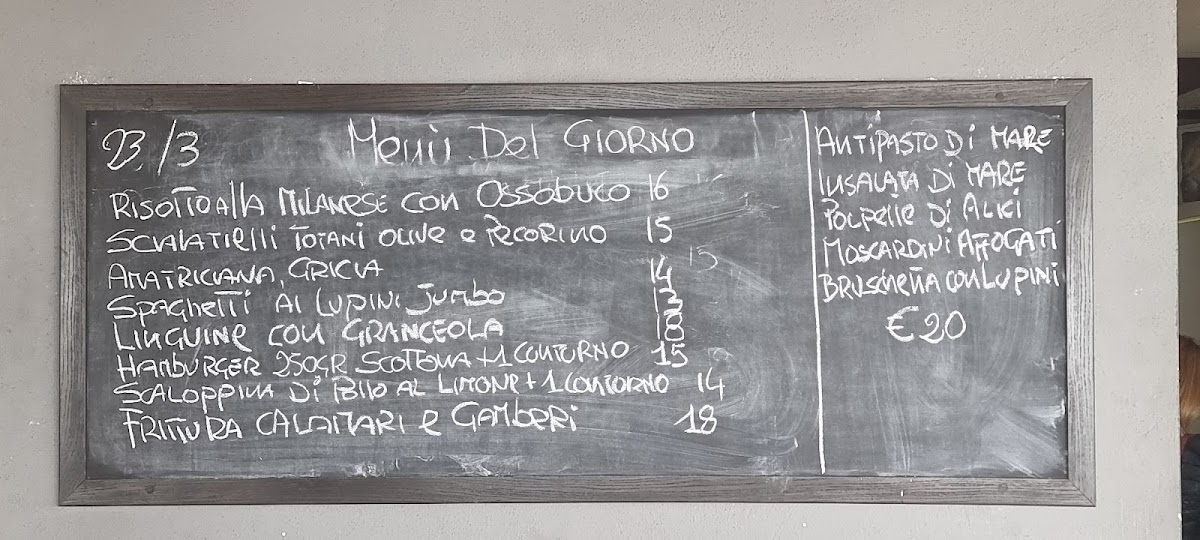 23/3 Menù Del GIORNO
RISOTTO Alla MILANESE con OSSOBUCO 16
SCIALATIELLI TOTANI OLIVE e PECORINO 15
AMATRICIANA, GRICIA 14
SPAGHETTI AI LUPINI JUMBO
LINGUINE CON GRANCEOLA
HAMBURGER 250GR SCOTTONA +1 CONTORNO 15
SCALOPPINA DI POLLO AL LIMONE +1 CONTORNO 14
FRITTURA CALAMARI e GAMBERI 18
ANTIPASTO DI MARE
INSALATA DI MARE
POLPETTE DI ALICI
MOSCARDINI AFFOGATI
BRUSCHETTA CON LUPINI
€20